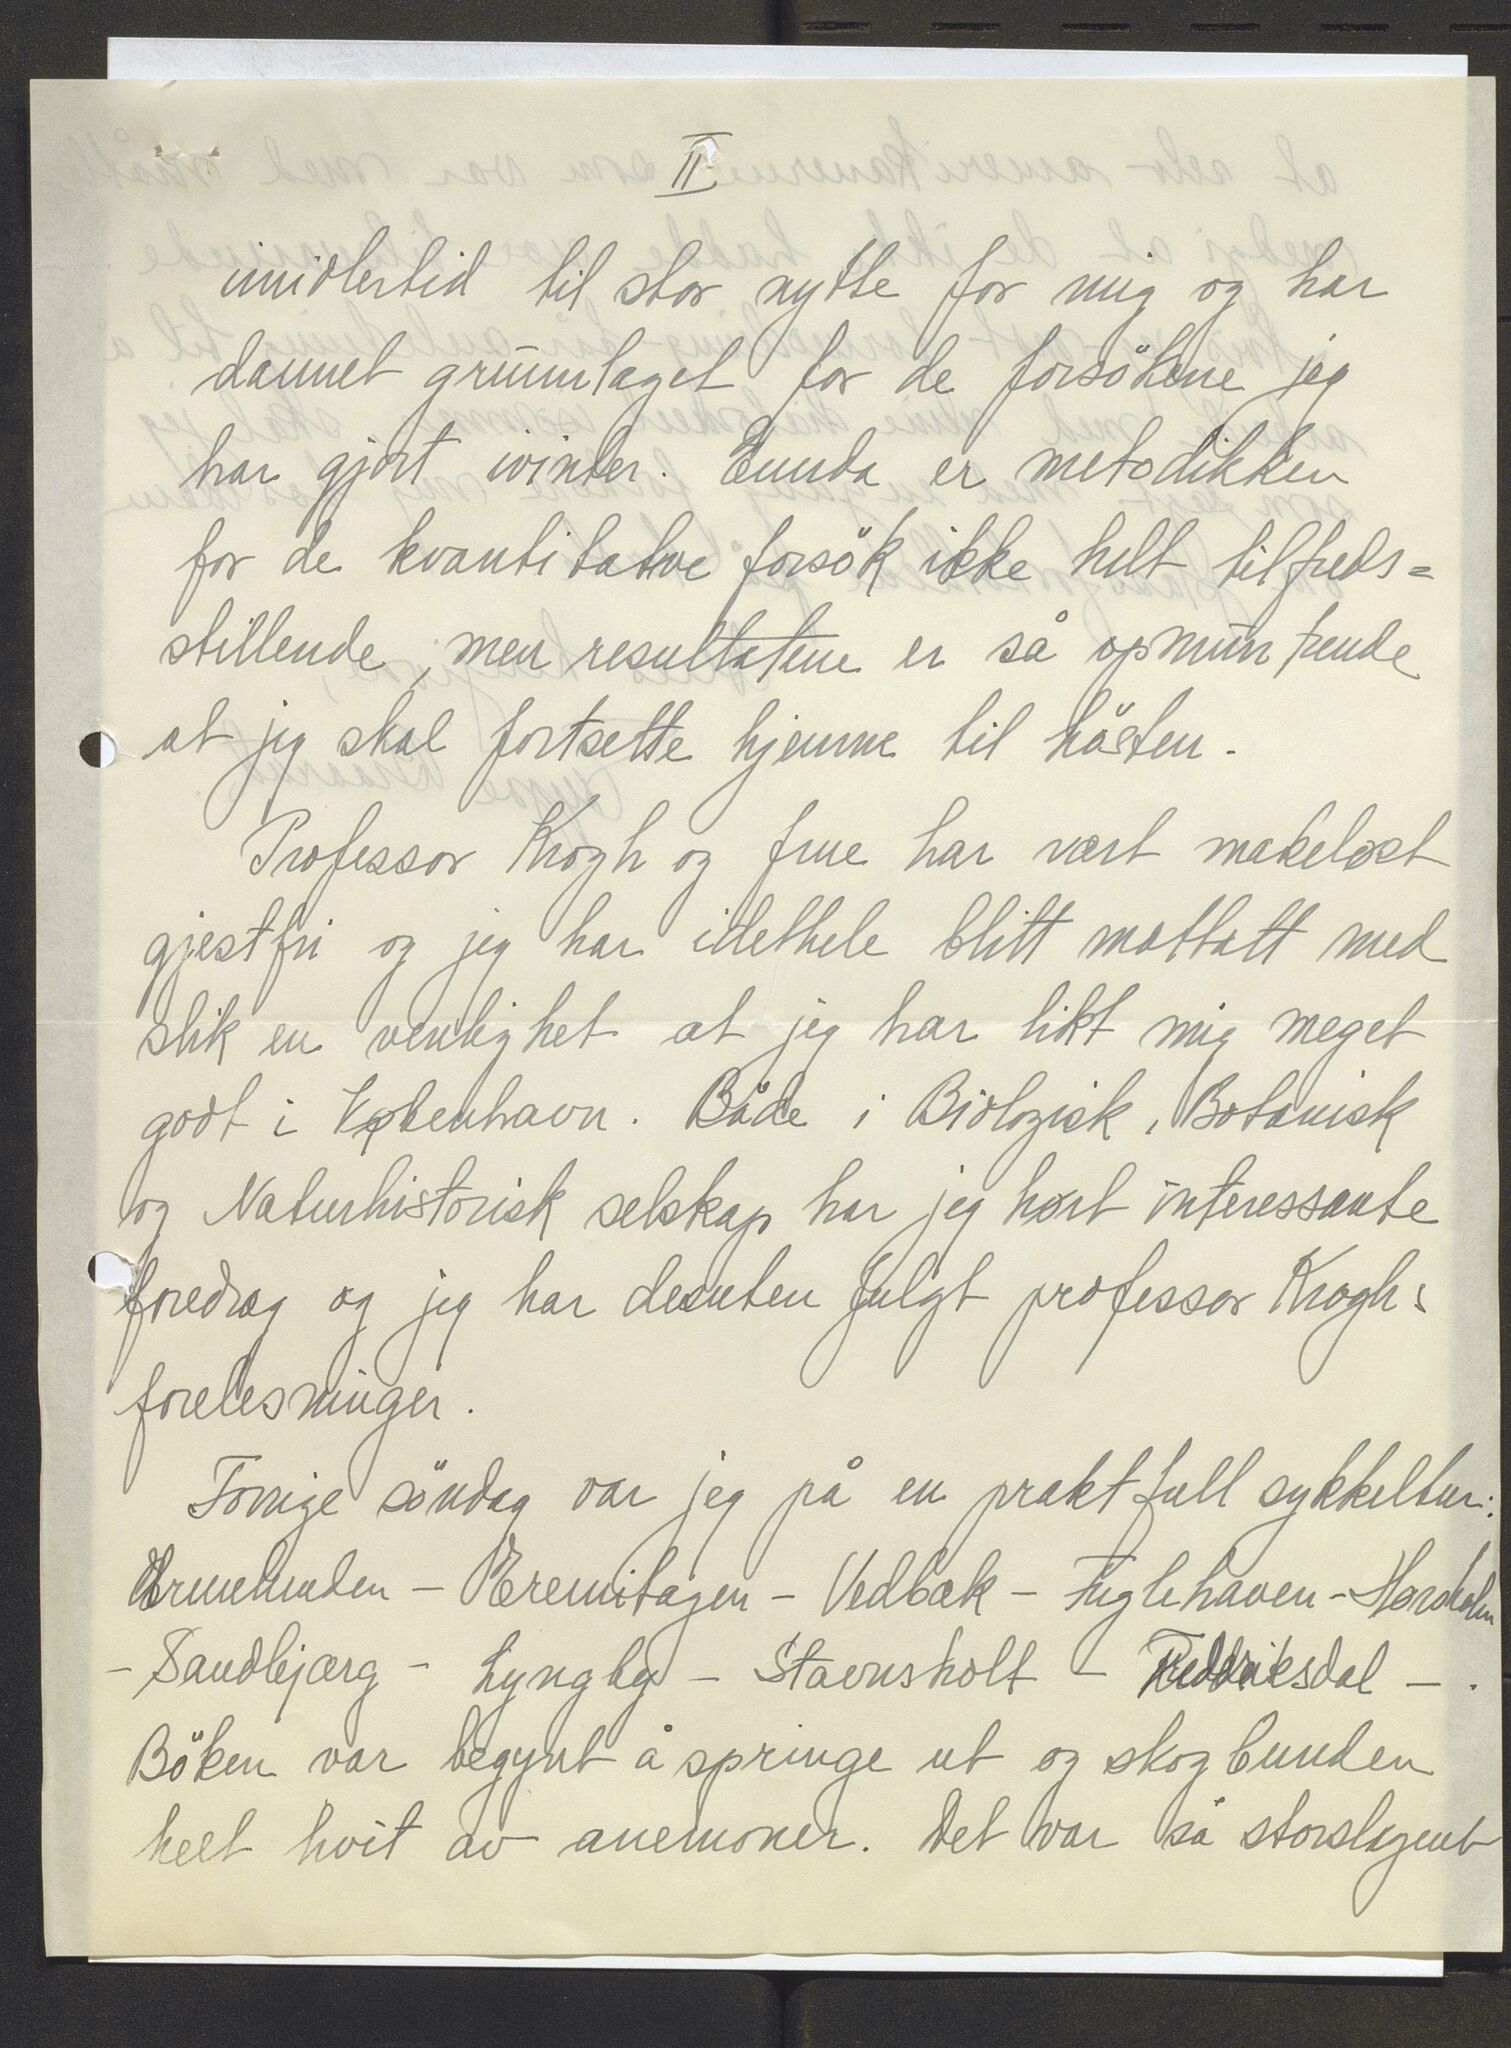 II
imidlertid til stor nytte for mig og har
dannet grunnlaget for de forsökene jeg
har gjort ivinter. Ennda er metodikken
for de kvantitative forsök ikke helt tilfreds=
stillende, men resultatene er så opmuntrende
at jeg skal fortsette hjemme til hösten.
Professor Krogh og frue har vært makeløst
gjestfri og jeg har idethele blitt mottatt med
slik en venlighet at jeg har likt mig meget
godt i København. Både i Biologisk, Botanisk
og Naturhistorisk selskap har jeg hørt interessante
foredrag og jeg har desuten fulgt professor Kroghs
forelesninger.
Forrige söndag var jeg på en praktfull sykkeltur:
Ermelunden - Eremitagen - Vedbæk - Fuglehaven - Hørsholm
- Sandbjærg - Lyngby - Stavnsholt - Fredriksdal -.
Böken var begynt å springe ut og skogbunden
helt hvit av anemoner. Det var så storslagent